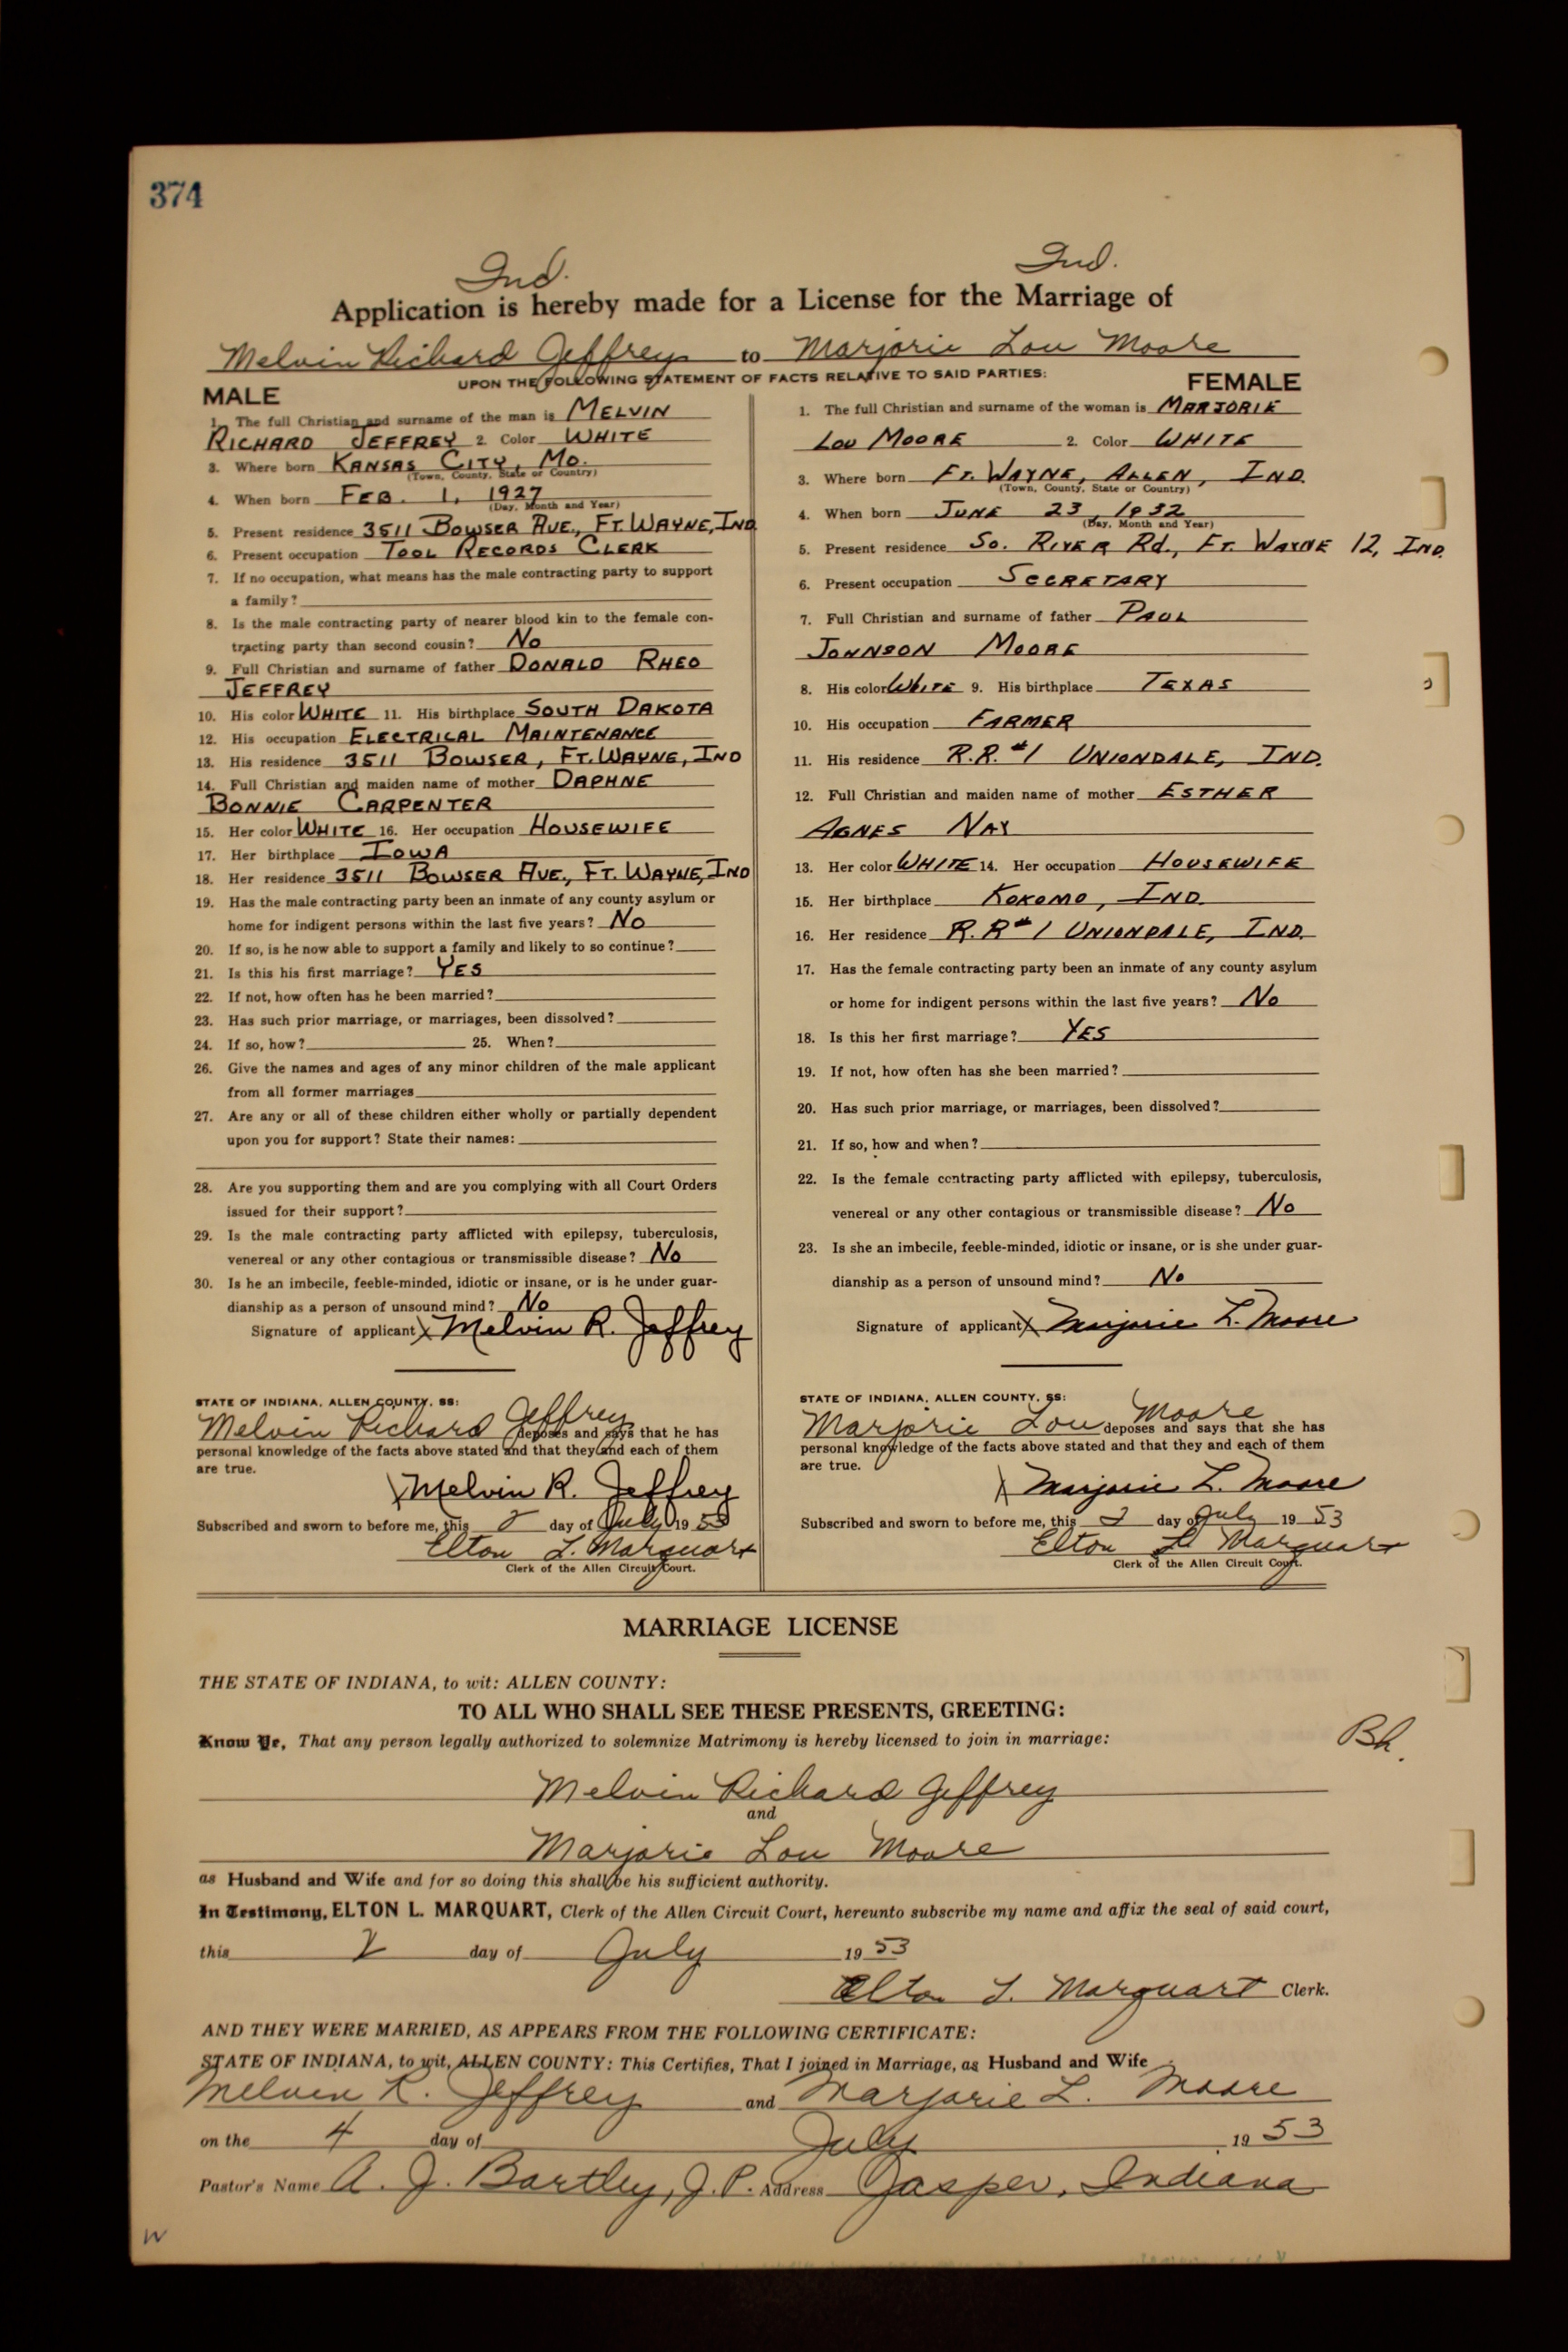 374
Ind. Ind.
Application is hereby made for a License for the Marriage of
Melvin Richard Jeffrey to Marjorie Lou Moore
UPON THE FOLLOWING STATEMENT OF FACTS RELATIVE TO SAID PARTIES:
MALE
1. The full Christian and surname of the man is MELVIN
RICHARD JEFFREY 2. Color WHITE
3. Where born KANSAS CITY, MO.
(Town, County, State or Country)
4. When born FEB. 1, 1927
(Day, Month and Year)
5. Present residence 3511 BOWSER AVE., FT. WAYNE, IND
6. Present occupation TOOL RECORDS CLERK
7. If no occupation, what means has the male contracting party to support
a family?
8. Is the male contracting party of nearer blood kin to the female con-
tracting party than second cousin? NO
9. Full Christian and surname of father DONALD RHEO
JEFFREY
10. His color WHITE 11. His birthplace SOUTH DAKOTA
12. His occupation ELECTRICAL MAINTENANCE
13. His residence 3511 BOWSER, FT. WAYNE, IND
14. Full Christian and maiden name of mother DAPHNE
BONNIE CARPENTER
15. Her color WHITE 16. Her occupation HOUSEWIFE
17. Her birthplace IOWA
18. Her residence 3511 BOWSER AVE., FT. WAYNE, IND
19. Has the male contracting party been an inmate of any county asylum or
home for indigent persons within the last five years? NO
20. If so, is he now able to support a family and likely to so continue?
21. Is this his first marriage? YES
22. If not, how often has he been married?
23. Has such prior marriage, or marriages, been dissolved?
24. If so, how? 25. When?
26. Give the names and ages of any minor children of the male applicant
from all former marriages
27. Are any or all of these children either wholly or partially dependent
upon you for support? State their names:
28. Are you supporting them and are you complying with all Court Orders
issued for their support?
29. Is the male contracting party afflicted with epilepsy, tuberculosis,
venereal or any other contagious or transmissible disease? NO
30. Is he an imbecile, feeble-minded, idiotic or insane, or is he under guar-
dianship as a person of unsound mind? NO
Signature of applicant X Melvin R. Jeffrey
STATE OF INDIANA, ALLEN COUNTY, SS:
Melvin Richard Jeffrey deposes and says that he has
personal knowledge of the facts above stated and that they and each of them
are true.
Melvin R. Jeffrey
Subscribed and sworn to before me, this 2 day of July 1953
Elton L. Marquart
Clerk of the Allen Circuit Court.
FEMALE
1. The full Christian and surname of the woman is MARJORIE
LOU MOORE 2. Color WHITE
3. Where born FT. WAYNE, ALLEN, IND.
(Town, County, State or Country)
4. When born JUNE 23, 1932
(Day, Month and Year)
5. Present residence SO. RIVER RD., FT. WAYNE 12, IND.
6. Present occupation SECRETARY
7. Full Christian and surname of father PAUL
JOHNSON MOORE
8. His color WHITE 9. His birthplace TEXAS
10. His occupation FARMER
11. His residence R.R.#1 UNIONDALE, IND.
12. Full Christian and maiden name of mother ESTHER
AGNES NAY
13. Her color WHITE 14. Her occupation HOUSEWIFE
15. Her birthplace KOKOMO, IND.
16. Her residence R.R#1 UNIONDALE, IND.
17. Has the female contracting party been an inmate of any county asylum
or home for indigent persons within the last five years? NO
18. Is this her first marriage? YES
19. If not, how often has she been married?
20. Has such prior marriage, or marriages, been dissolved?
21. If so, how and when?
22. Is the female contracting party afflicted with epilepsy, tuberculosis,
venereal or any other contagious or transmissible disease? NO
23. Is she an imbecile, feeble-minded, idiotic or insane, or is she under guar-
dianship as a person of unsound mind? NO
Signature of applicant X Marjorie L. Moore
STATE OF INDIANA, ALLEN COUNTY, SS:
Marjorie Lou Moore deposes and says that she has
personal knowledge of the facts above stated and that they and each of them
are true.
Marjorie L. Moore
Subscribed and sworn to before me, this 2 day of July 1953
Elton L. Marquart
Clerk of the Allen Circuit Court.
MARRIAGE LICENSE
THE STATE OF INDIANA, to wit: ALLEN COUNTY:
TO ALL WHO SHALL SEE THESE PRESENTS, GREETING:
Know Ye, That any person legally authorized to solemnize Matrimony is hereby licensed to join in marriage:
Melvin Richard Jeffrey
and
Marjorie Lou Moore
as Husband and Wife and for so doing this shall be his sufficient authority.
In Testimony, ELTON L. MARQUART, Clerk of the Allen Circuit Court, hereunto subscribe my name and affix the seal of said court,
this 2 day of July 1953
Elton L. Marquart Clerk.
AND THEY WERE MARRIED, AS APPEARS FROM THE FOLLOWING CERTIFICATE:
STATE OF INDIANA, to wit, ALLEN COUNTY: This Certifies, That I joined in Marriage, as Husband and Wife
Melvin R. Jeffrey and Marjorie L. Moore
on the 4 day of July 1953
Pastor's Name A. J. Bartley, J.P. Address Jasper, Indiana
W